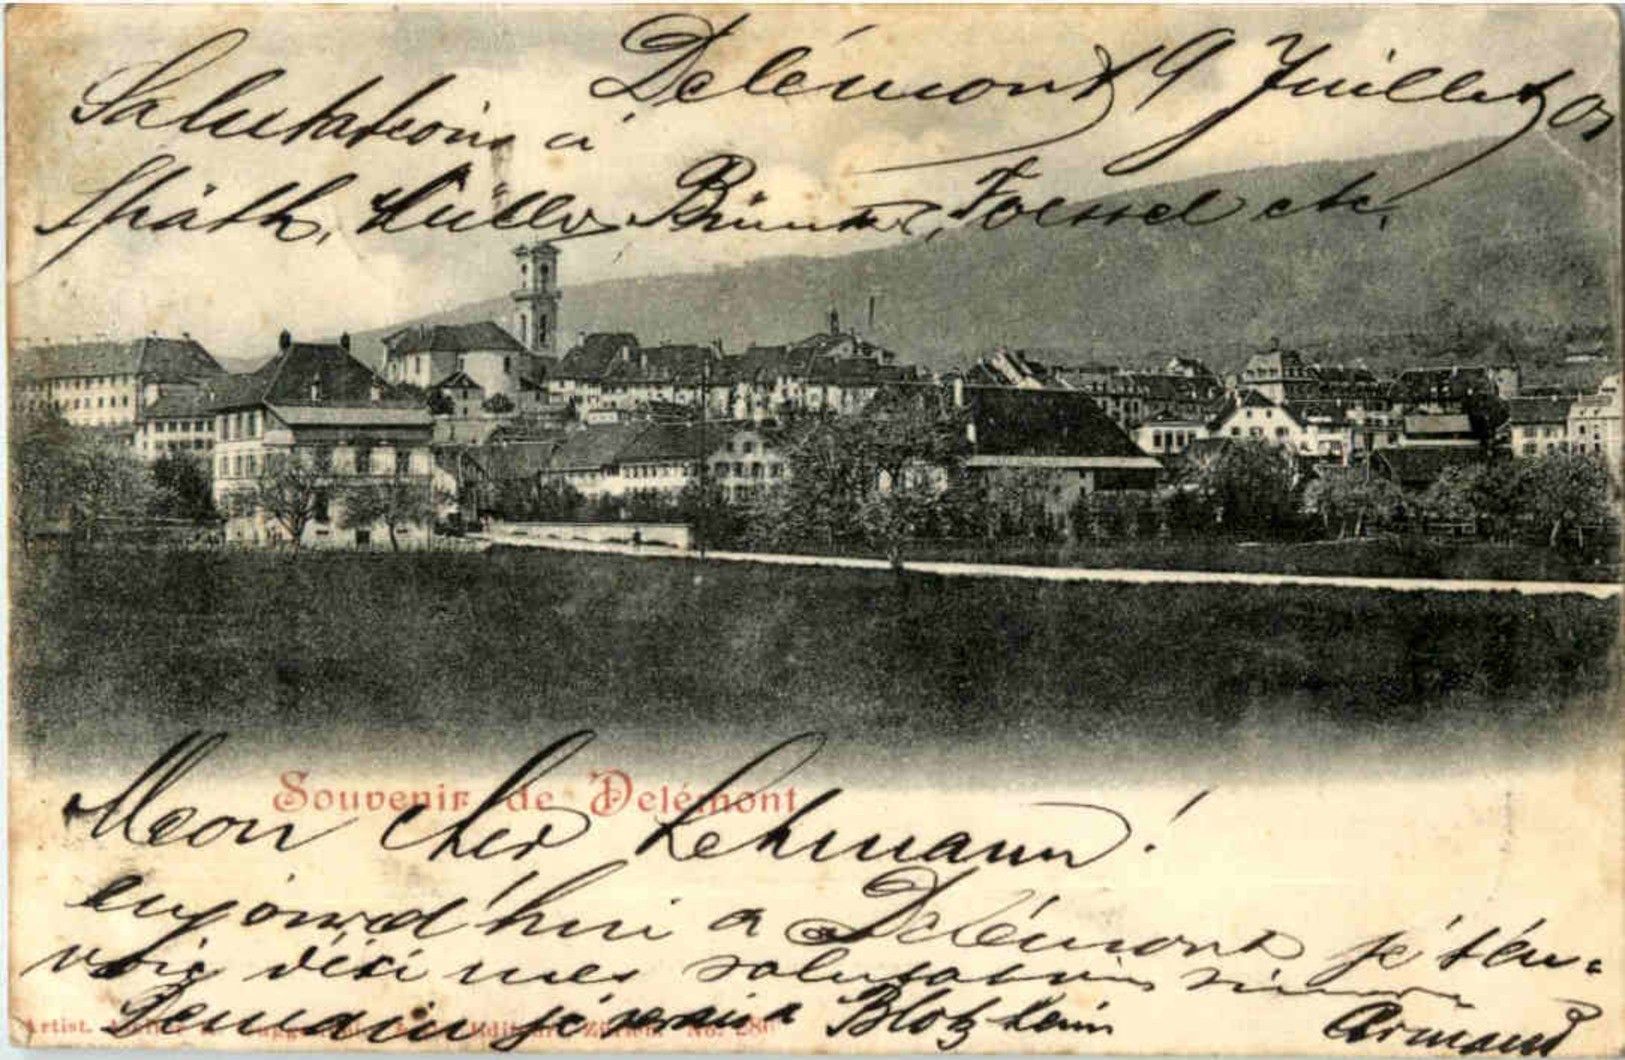 Delémont 9 Juillet 01
Salutations à
Späth, Müller, Brunner, Foessel etc.
Souvenir de Delémont
Mon cher Lehmann!
aujourd'hui a Delémont je t'en-
voie d'ici mes salutations
Demain je serai a Blotzheim
Armand
Artist. No.